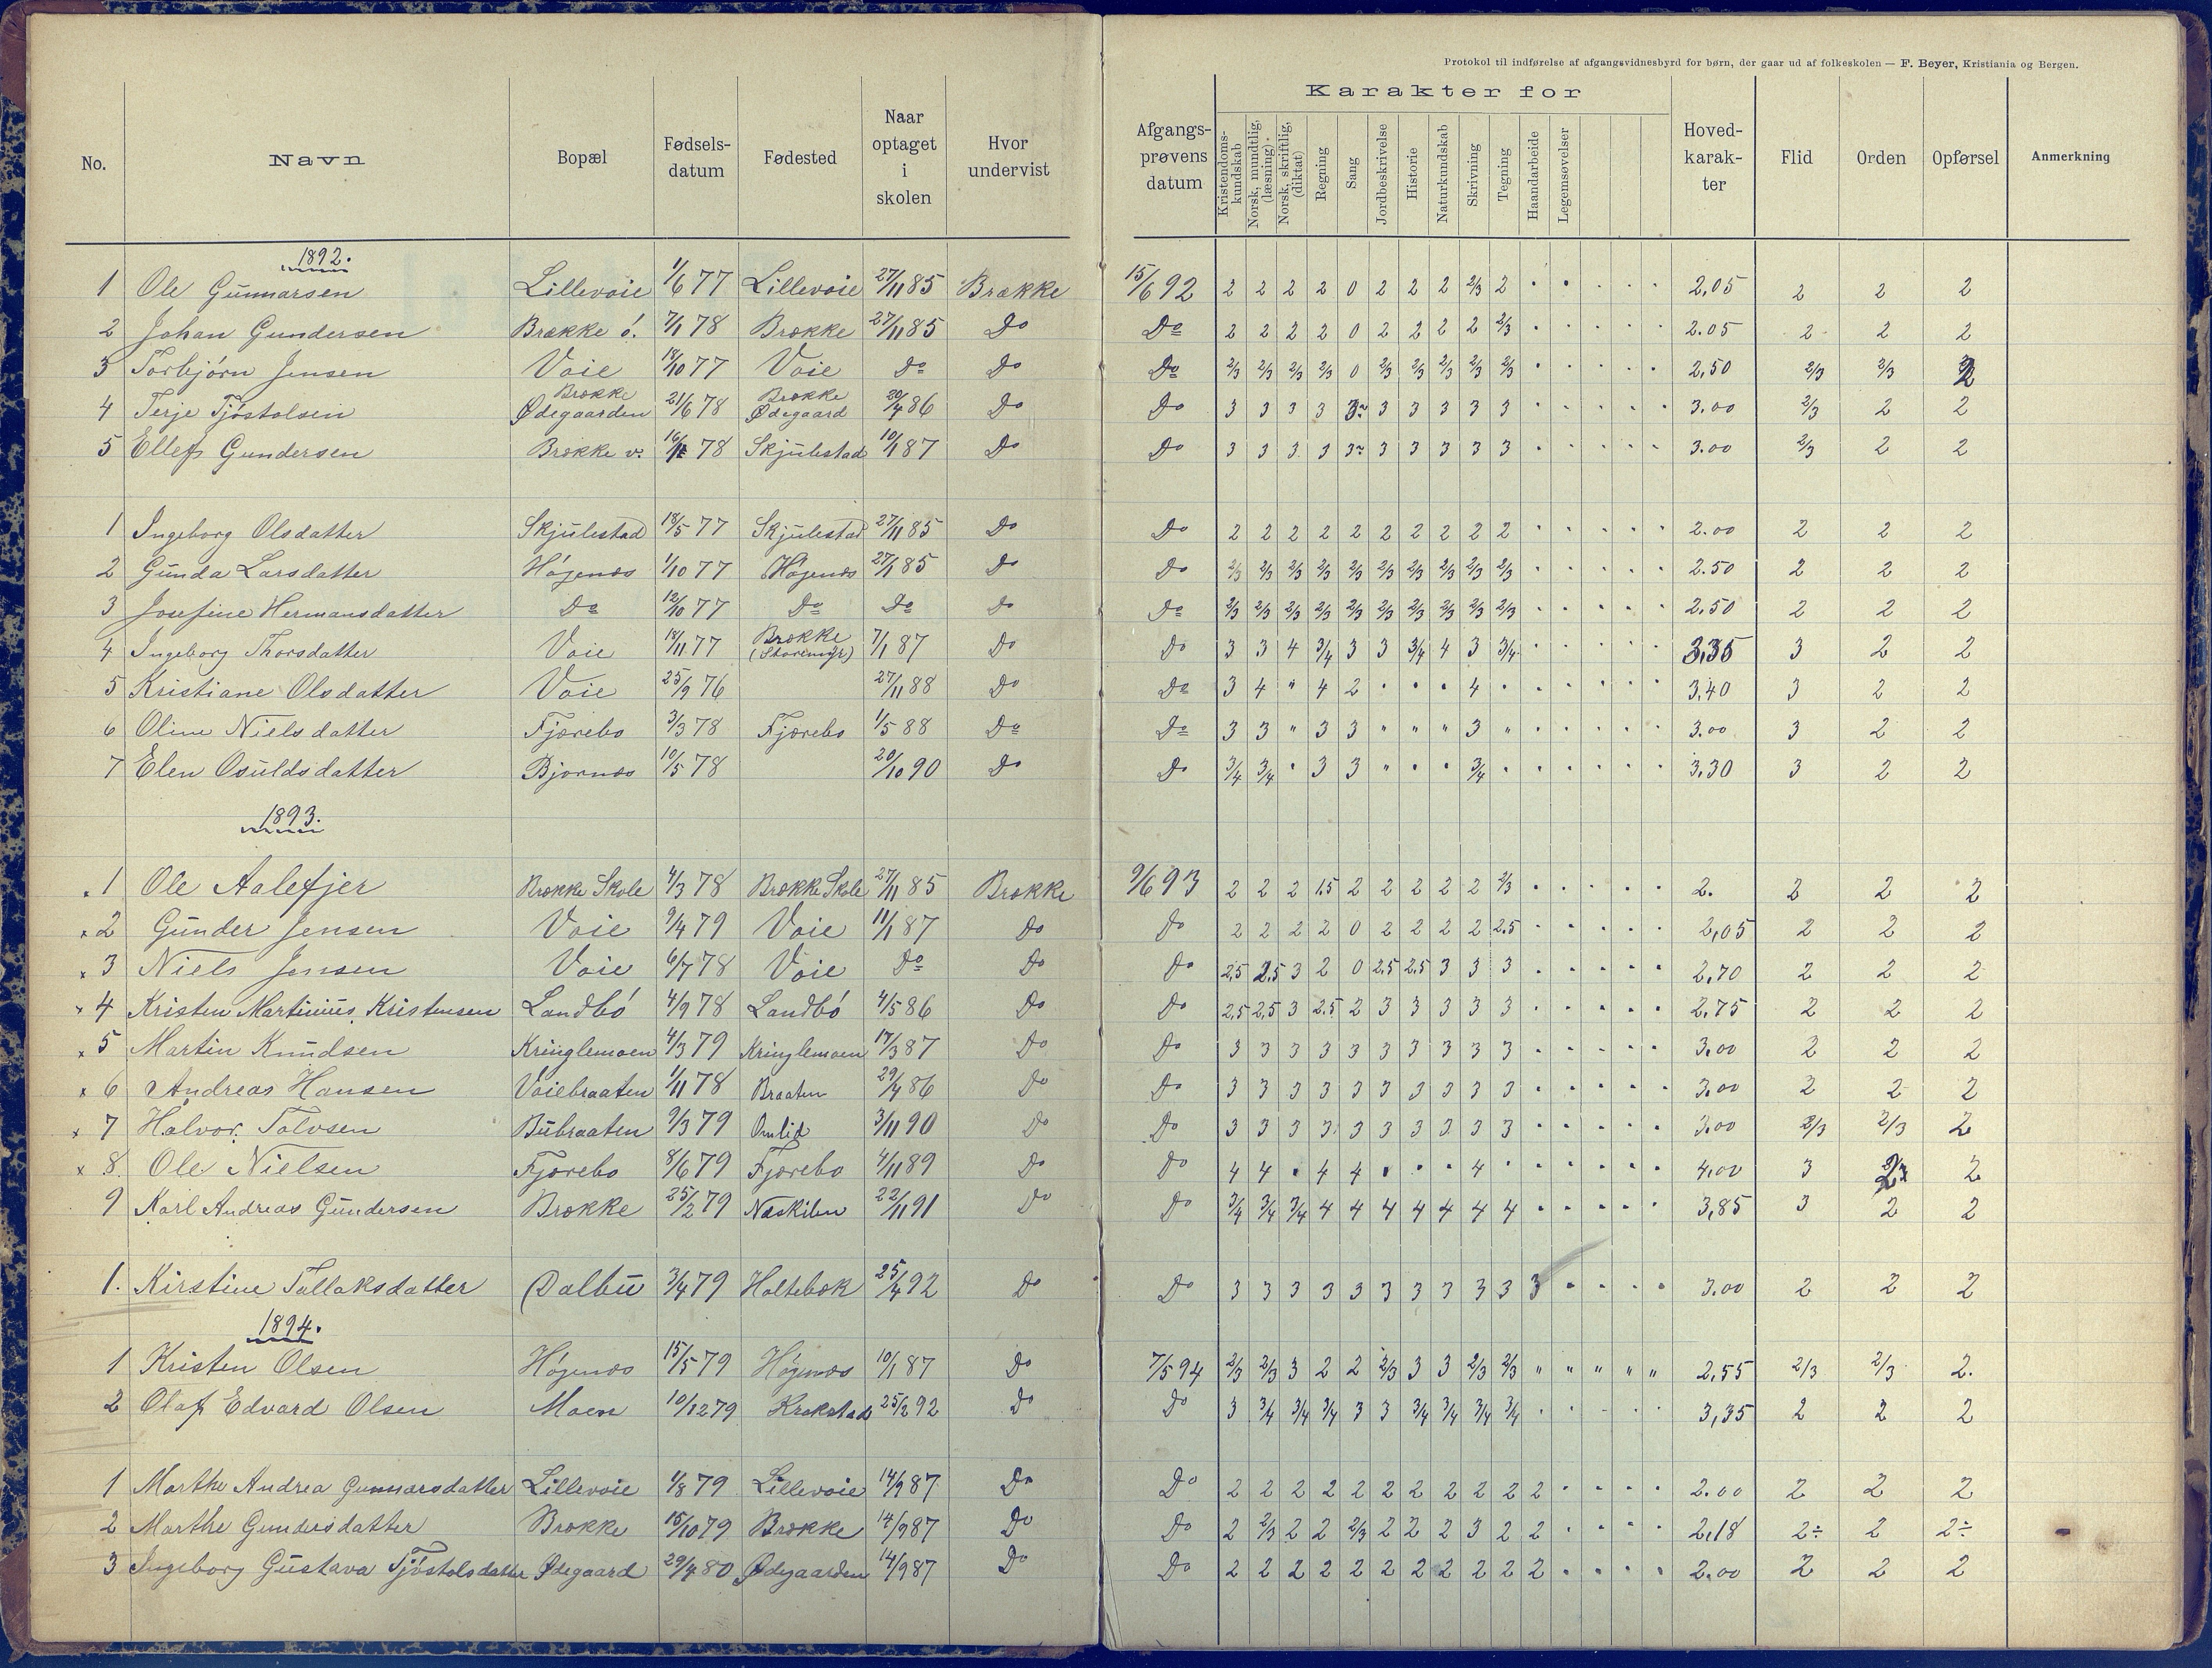 Protokol til indførelse af afgangsvidnesbyrd for børn, der gaar ud af folkeskolen — F. Beyer, Kristiania og Bergen.
Karakter for
No. Navn Bopæl Fødsels-datum Fødested Naar optaget i skolen Hvor undervist Afgangs-prøvens datum Kristendoms-kundskab Norsk, mundtlig, (læsning). Norsk, skriftlig, (diktat) Regning Sang Jordbeskrivelse Historie Naturkundskab Skrivning Tegning Haandarbeide Legemsøvelser Hoved-karak-ter Flid Orden Opførsel Anmerkning
1892.
1 Ole Gunnarsen Lillevoie 1/6 77 Lillevoie 27/11 85 Brække 15/6 92 2 2 2 2 0 2 2 2 2/3 2 2,05 2 2 2
2 Johan Gundersen Brække ó. 7/1 78 Brække 27/11 85 Do Do 2 2 2 2 0 2 2 2 2 2/3 2.05 2 2 2
3 Torbjórn Jensen Voie 18/10 77 Voie Do Do Do 2/3 2/3 2/3 2/3 0 2/3 2/3 2/3 2/3 2/3 2,50 2/3 2/3 2
4 Terje Tjóstolsen Brække Ødegaarden 21/6 78 Brække Ødegaard 20/4 86 Do Do 3 3 3 3 3 3 3 3 3 3 3.00 2/3 2 2
5 Ellef Gundersen Brække v. 78 Skjulestad 10/1 87 Do Do 3 3 3 3 3 3 3 3 3 3 3.00 2/3 2 2
1 Ingeborg Olsdatter Skjulestad 18/5 77 Skjulestad 27/11 85 Do Do 2 2 2 2 2 2 2 2 2 2 2.00 2 2 2
2 Gunda Larsdatter Högenæs 1/10 77 Högenæs 27/1 85 Do Do 2/3 2/3 2/3 2/3 2/3 2/3 2/3 2/3 2/3 2/3 2.50 2 2 2
3 Josefine Hermansdatter Do 12/10 77 Do Do Do Do 2/3 2/3 2/3 2/3 2/3 2/3 2/3 2/3 2/3 2/3 2,50 2 2 2
4 Ingeborg Thorsdatter Voie 18/11 77 Brække (Storemyr) 7/1 87 Do Do 3 3 4 3/4 3 3 3/4 4 3 3/4 3,35 3 2 2
5 Kristiane Olsdatter Voie 25/9 76 27/11 88 Do Do 3 4 " 4 2 4 3,40 3 2 2
6 Oline Nielsdatter Fjærebo 3/3 78 Fjærebo 1/5 88 Do Do 3 3 " 3 3 " " " 3 " 3.00 3 2 2
7 Elen Osuldsdatter Bjornæs 10/5 78 20/10 90 Do Do 3/4 3/4 3 3 3/4 3,30 3 2 2
1893.
1 Ole Aalefjer Brække Skole 4/3 78 Brække Skole 27/11 85 Brække 9/6 93 2 2 2 1.5 2 2 2 2 2 2/3 2. 2 2 2
x 2 Gunder Jensen Voie 9/4 79 Voie 11/1 87 Do Do 2 2 2 2 0 2 2 2 2 2.5 2,05 2 2 2
x 3 Niels Jensen Voie 6/7 78 Voie Do Do Do 2,5 2.5 3 2 0 2,5 2,5 3 3 3 2,70 2 2 2
x 4 Kristen Martinius Kristensen Landbó 4/9 78 Landbó 4/5 86 Do Do 2,5 2,5 3 2.5 2 3 3 3 3 3 2,75 2 2 2
x 5 Martin Knudsen Kringlemoen 4/3 79 Kringlemoen 17/3 87 Do Do 3 3 3 3 3 3 3 3 3 3 3,00 2 2 2
x 6 Andreas Hansen Voiebraaten 1/11 78 Braaten 29/4 86 Do Do 3 3 3 3 3 3 3 3 3 3 3,00 2 2 2
x 7 Halvor Tolvsen Bubraaten 9/3 79 Omlid 3/11 90 Do Do 3 3 3 3 3 3 3 3 3 3 3,00 2/3 2/3 2
x 8 Ole Nielsen Fjærebo 8/6 79 Fjærebo 4/11 89 Do Do 4 4 4 4 4 4,00 3 2
9 Karl Andreas Gundersen Brække 25/2 79 Næskilen 22/11 91 Do Do 3/4 3/4 3/4 4 4 4 4 4 4 4 3,85 3 2 2
1. Kirstine Tallaksdatter Dalbu 3/4 79 Holtebæk 25/4 92 Do Do 3 3 3 3 3 3 3 3 3 3 3 3.00 2 2 2
1894.
1 Kristen Olsen Högenæs 15/5 79 Högenæs 10/1 87 Do 7/5 94 2/3 2/3 3 2 2 2/3 3 3 2/3 2/3 " " " " " 2,55 2/3 2/3 2.
2 Olaf Edvard Olsen Moen 10/12 79 Krokstad 25/2 92 Do Do 3 3/4 3/4 3/4 3 3 3/4 3/4 3/4 3/4 3,35 2 2 2
1 Marthe Andrea Gunnarsdatter Lillevoie 1/8 79 Lillevoie 14/9 87 Do Do 2 2 2 2 2 2 2 2 2 2 2 2.00 2 2 2
2 Marthe Gundersdatter Brække 15/10 79 Brække 14/9 87 Do Do 2 2/3 2 2 2/3 2 2 2 3 2 2 2,18 2÷ 2 2÷
3 Ingeborg Gustava Tjóstolsdatter Ødegaard 29/4 80 Ødegaarden 14/9 87 Do Do 2 2 2 2 2 2 2 2 2 2 2 2.00 2 2 2